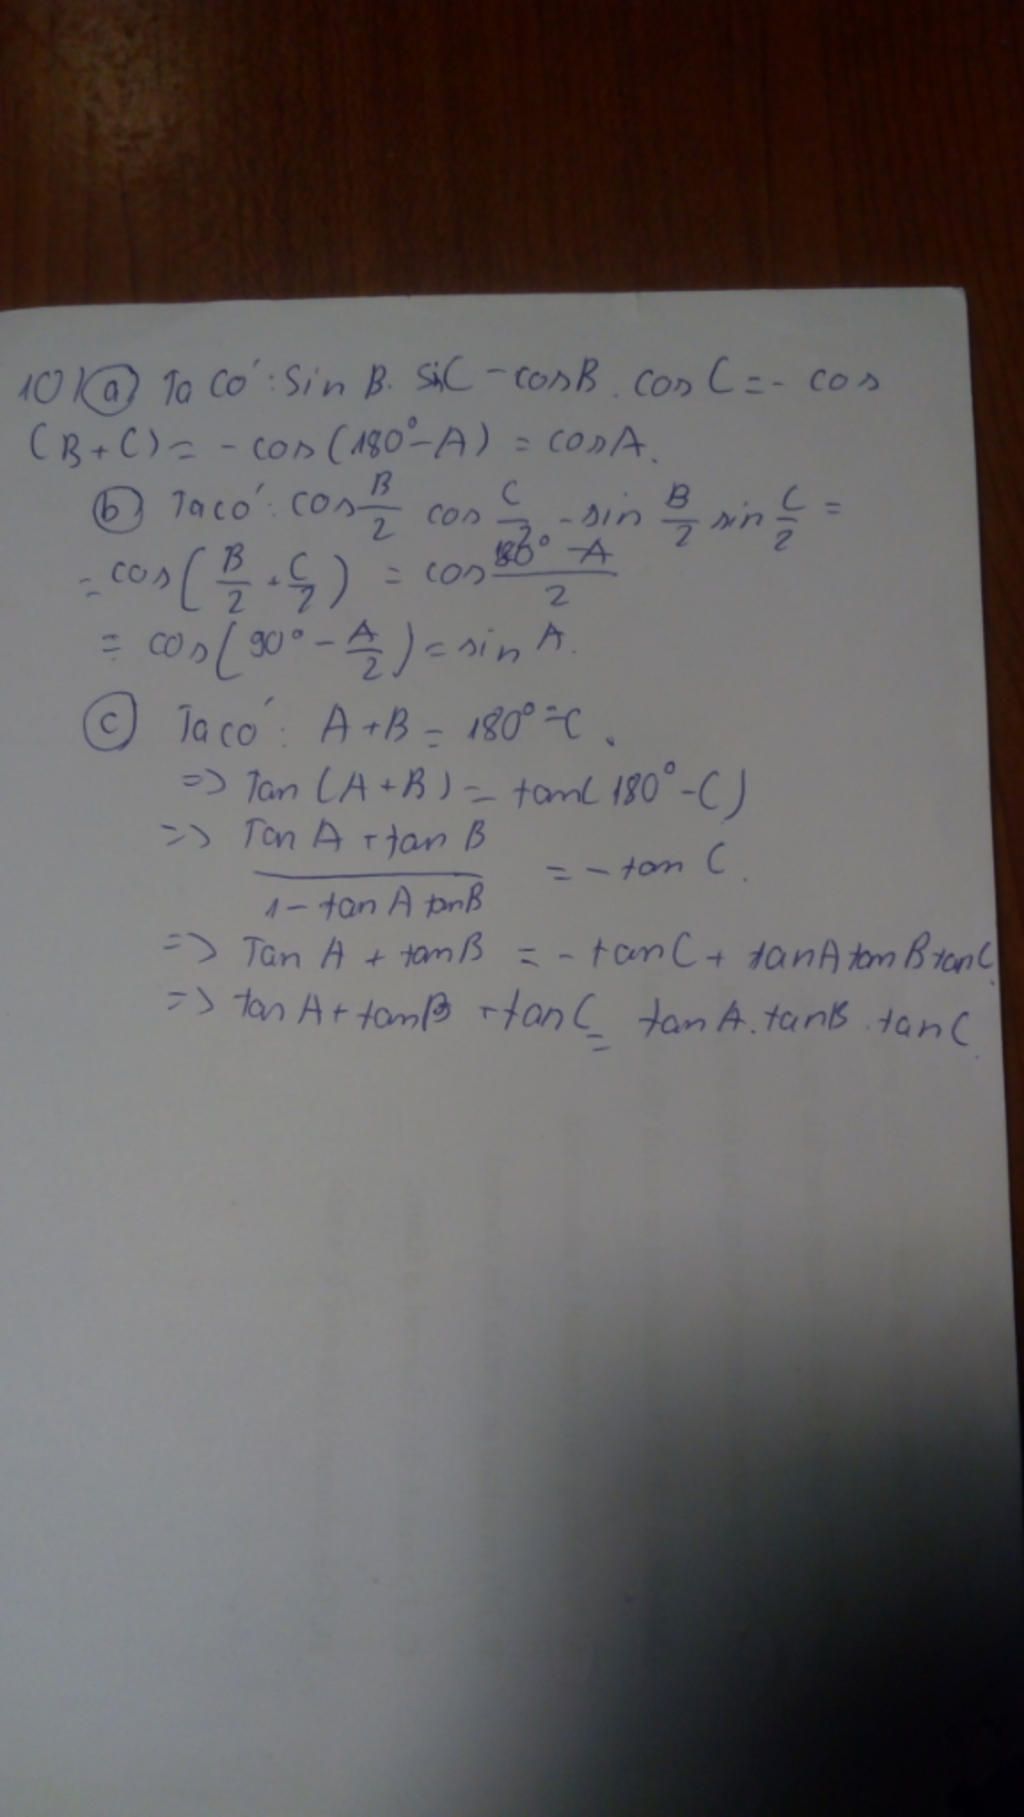 10) a) Ta có: sin B. sin C - cos B. cos C = - cos
(B + C) = - cos (180° - A) = cos A.
b) Ta có: cos B/2 cos C/2 - sin B/2 sin C/2 =
= cos (B/2 + C/2) = cos (180° - A)/2
= cos (90° - A/2) = sin A.
c) Ta có: A + B = 180° - C.
=> Tan (A + B) = tan (180° - C)
=> (Tan A + tan B)/(1 - tan A tan B) = - tan C.
=> Tan A + tan B = - tan C + tan A tan B tan C.
=> tan A + tan B + tan C = tan A. tan B. tan C.